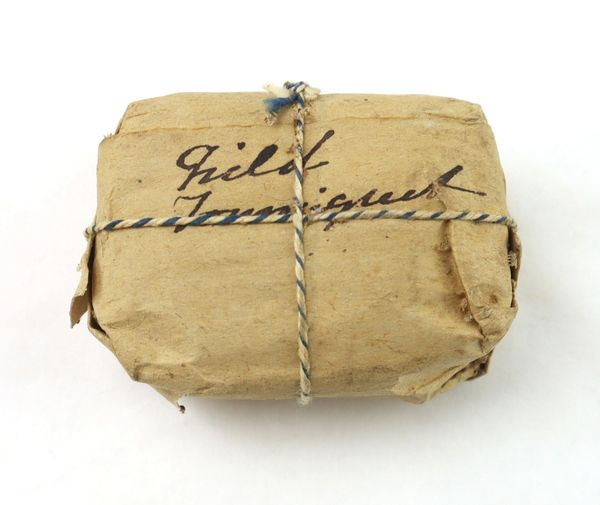 Field
Tourniquet